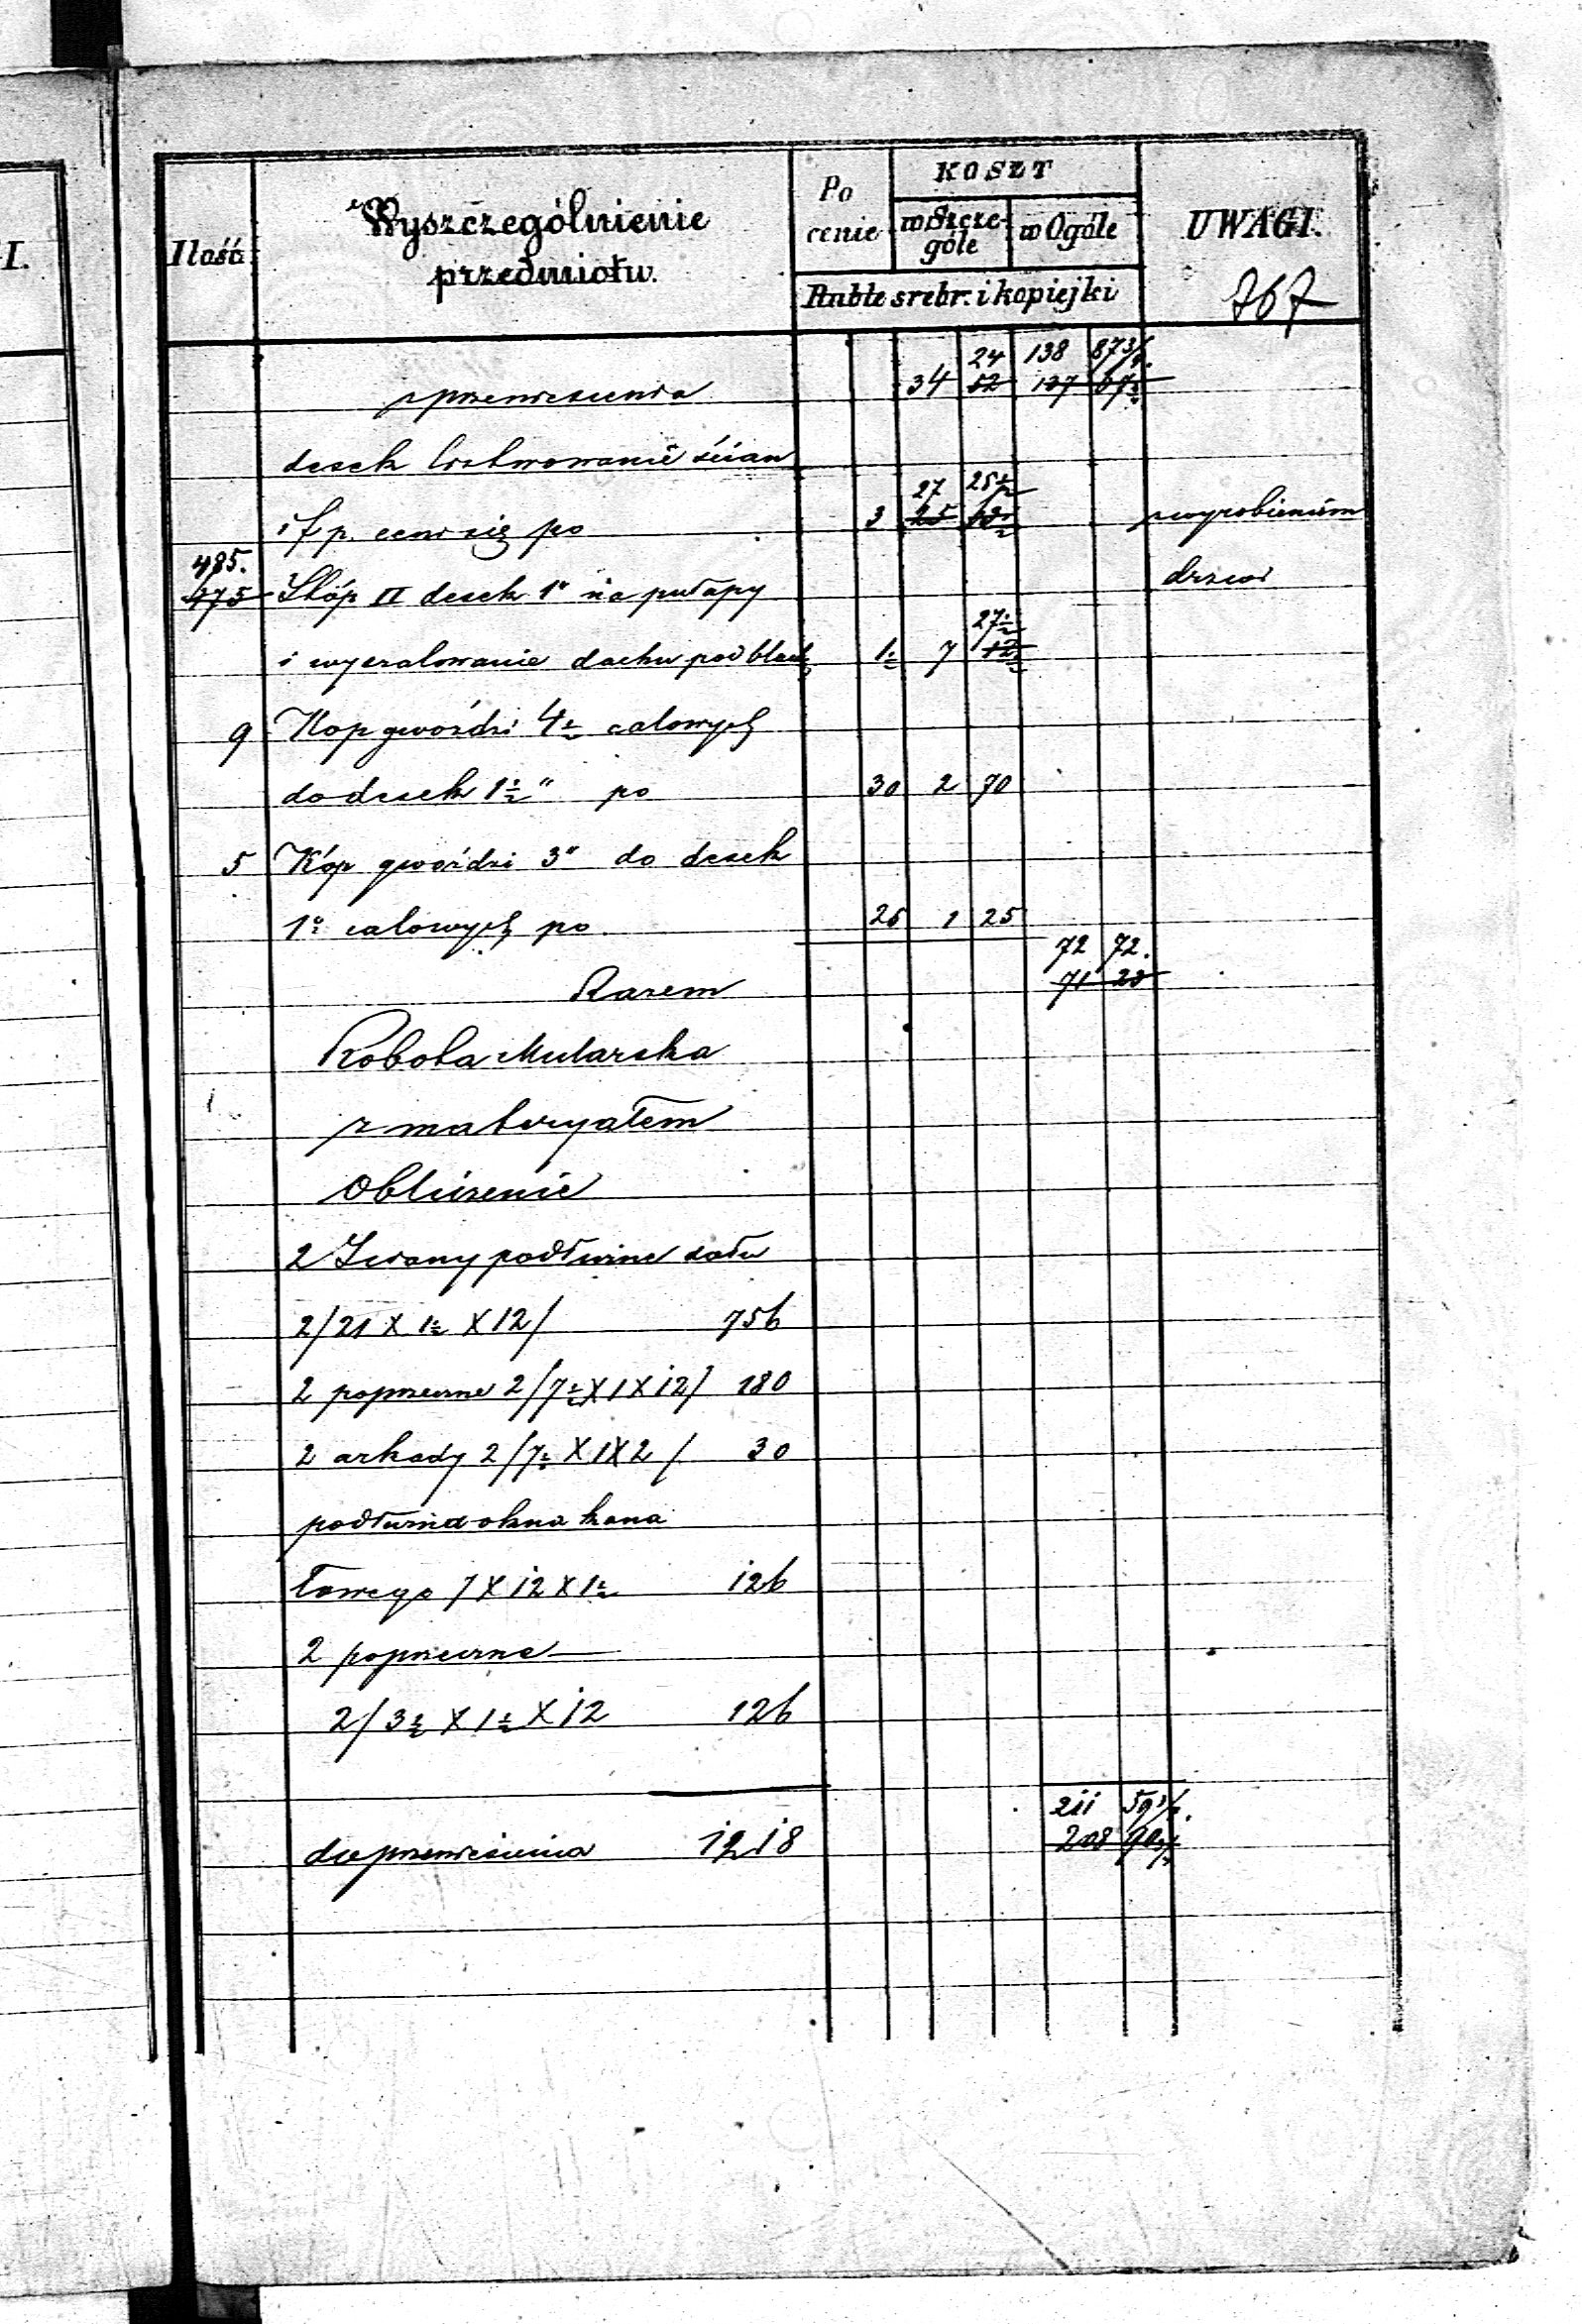 I.
Ilość
Wyszczególnienie
przedmiotu.
Po
cenie
KOSZT
w Szcze-
góle
w Ogóle
Ruble srebr. i kopiejki
UWAGI.
767
24 138 87 3/4.
z przeniesienia 34 52 137 67½
desek listwowanie ścian
27 25½
i t p. ceni się po 3 25 z wyrobieniem
485.
475 Stóp II desek 1" na pułapy drzewi
27½
i wyszalowanie dachu pod blachę 1½ 7 12½
9 Kop gwoździ 4½ calowych
do desek 1½" po 30 2 70
5 Kóp gwoździ 3" do desek
1" calowych po 25 1 25
72 72.
Razem 71 28
Robota Mularska
z materyałem
Obliczenie
2 Sciany podłużne dołu
2/21 X 1½ X 12/ 756
2 poprzeczne 2/7½ X 1 X 12/ 180
2 arkady 2/7½ X 1 X 2/ 30
podłużna okna kana
łowego 7 X 12 X 1½ 126
2 poprzeczne
2/3½ X 1½ X 12 126
211 59 3/4.
do przeniesienia 1218 208 90 3/4